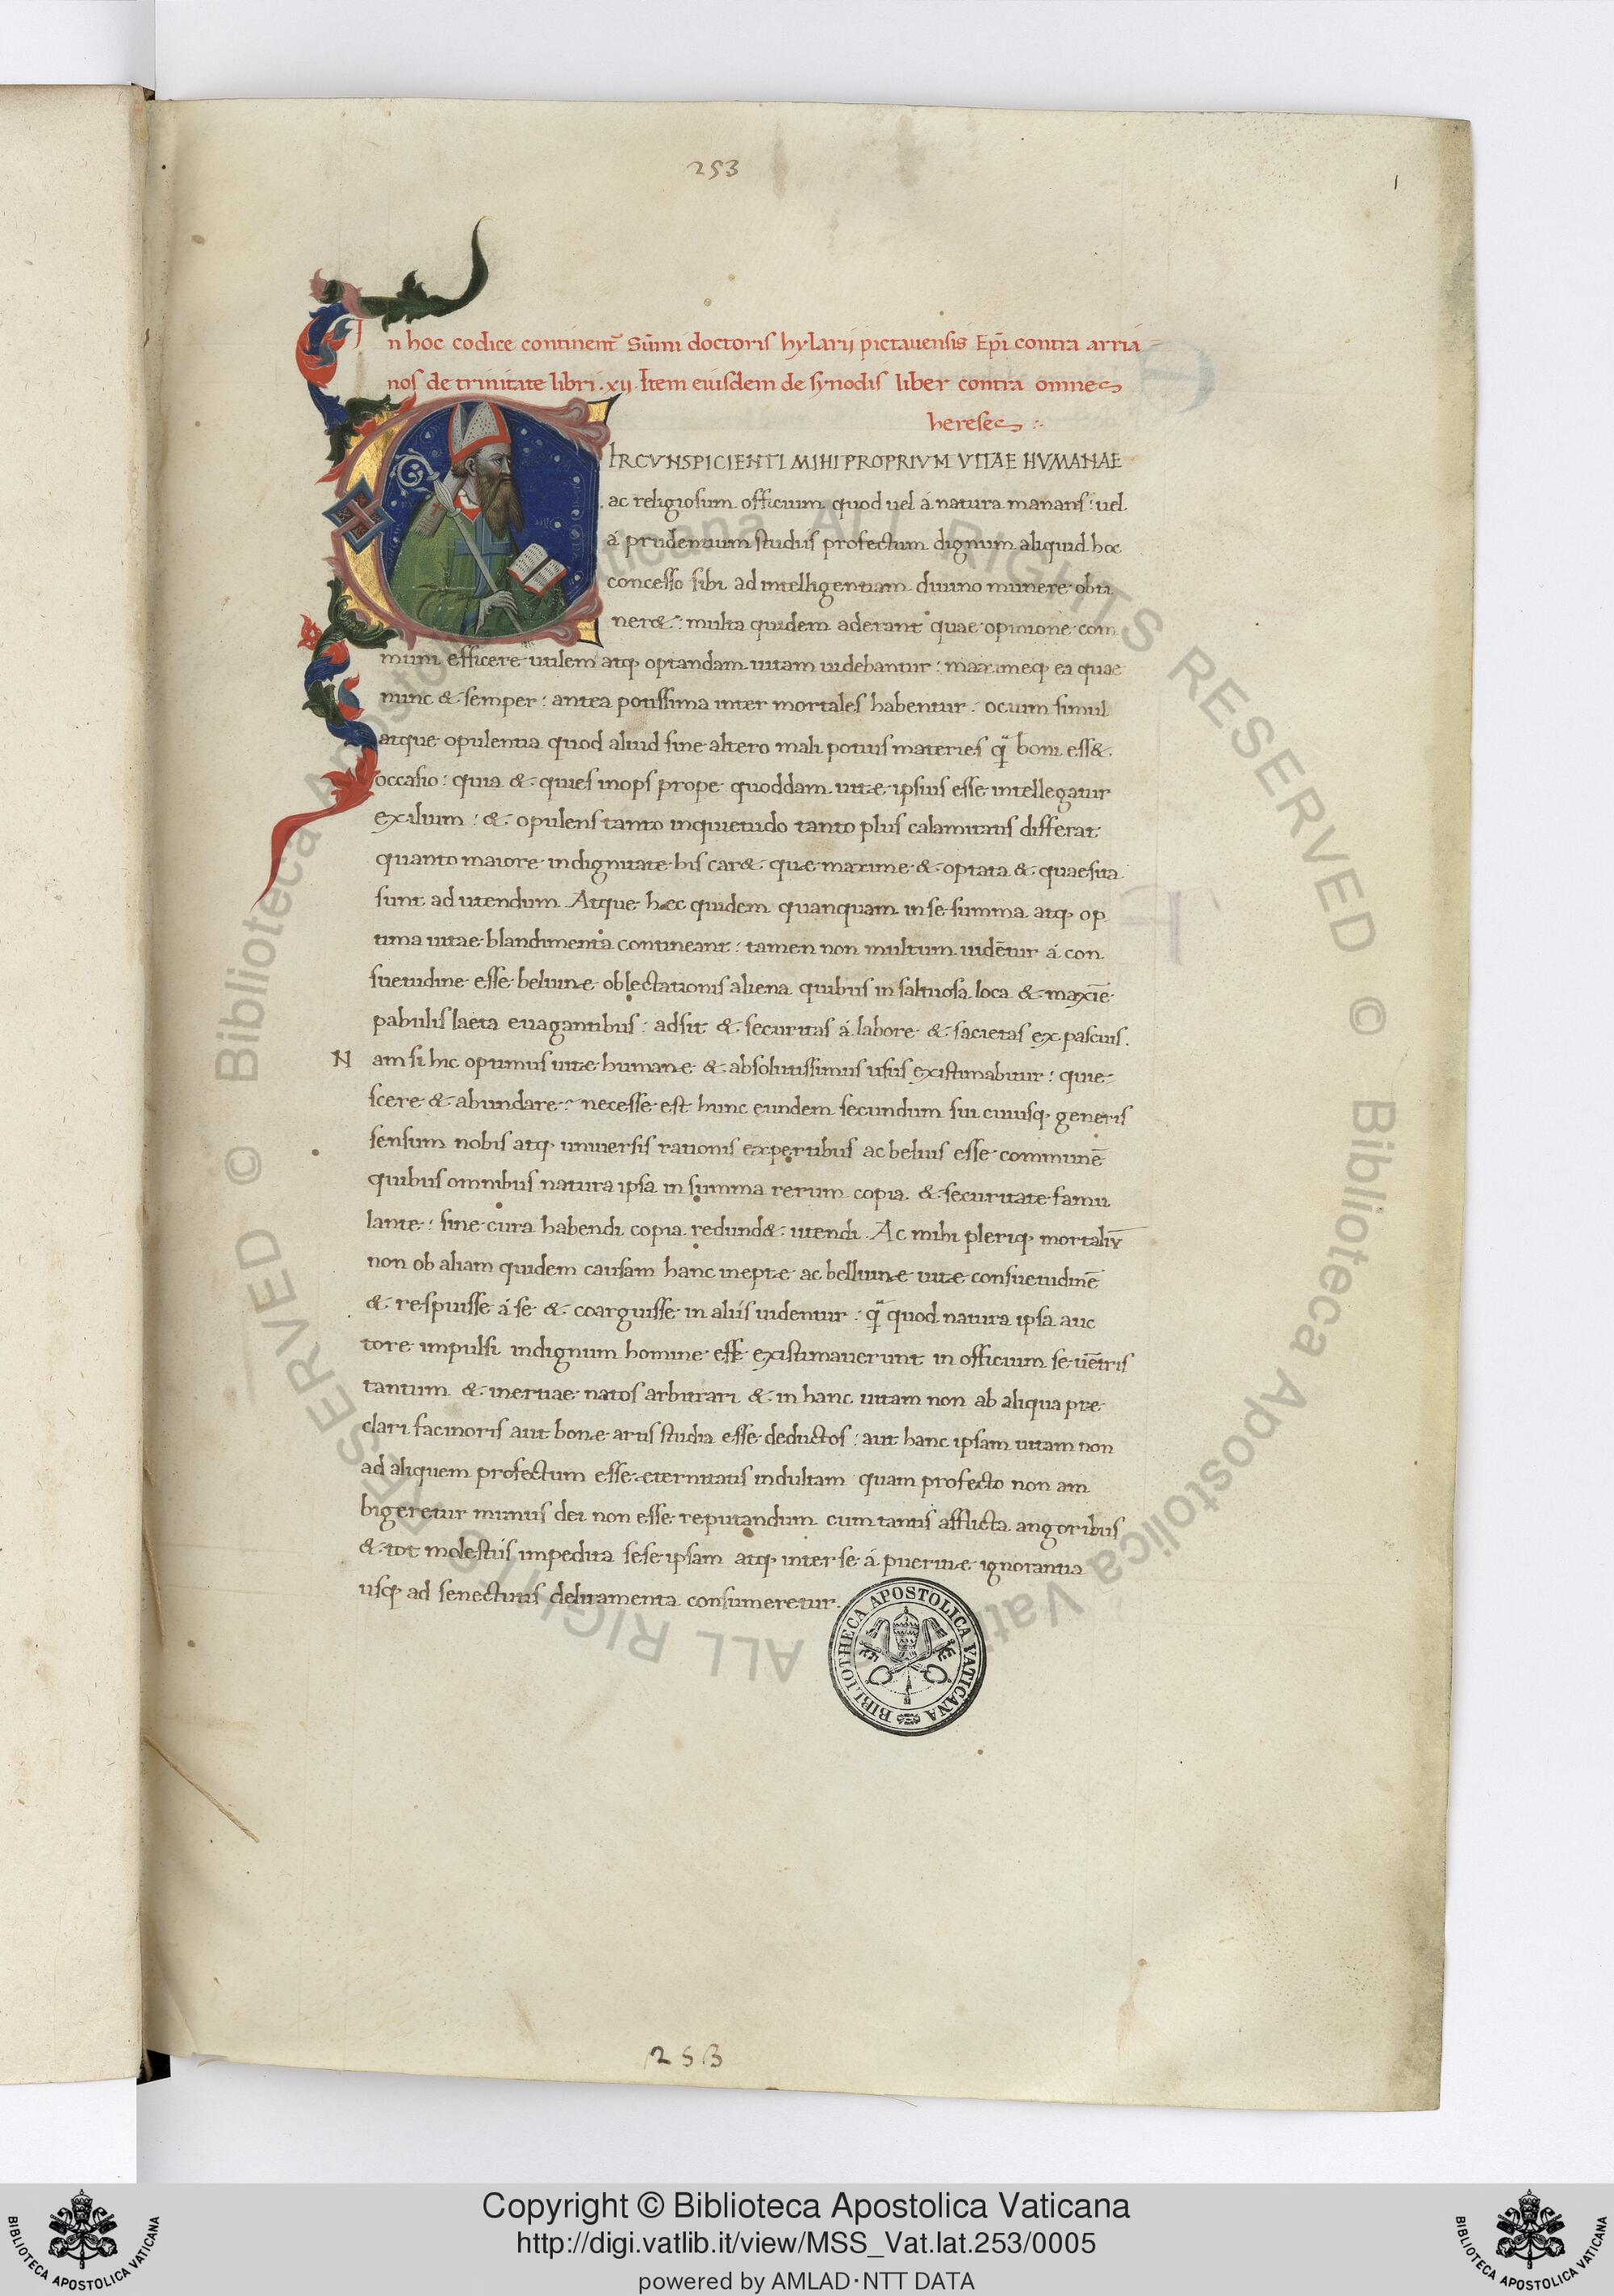 253
1
In hoc codice continent᷑ Sūmi doctoris hylarij pictauensis Ep̄i contra arria
nos de trinitate libri .xij. Item eiusdem de synodis liber contra omnes
hereses :~
CIRCVNSPICIENTI MIHI PROPRIVM VITAE HVMANAE
ac religiosum officium quod uel á natura manans: uel
á prudentium studiis profectum dignum aliquid hoc
concesso sibi ad intelligentiam diuino munere obti
ner&: multa quidem aderant quae opinione com
muni efficere utilem atq; optandam uitam uidebantur: maximeq; ea quae
nunc & semper: antea potissima inter mortales habentur: ocium simul
atque opulentia quod aliud sine altero mali potius materies q̃ boni ess&
occasio: quia & quies inops prope quoddam uitę ipsius esse intellegatur
exilium: & opulens tanto inquietudo tanto plus calamitatis differat
quanto maiore indignitate his car& quę maxime & optata & quaesita
sunt ad utendum. Atque hęc quidem quanquam in se summa atq; op
tima uitae blandimenta contineant: tamen non multum uidēt​ur á con
suetudine esse beluinę oblectationis aliena quibus in saltuosa loca & maxīe
pabulis laeta euagantibus: adsit & securitas á labore & sacietas ex pascuis.
Nam si hic optimus uitę humanę & absolutissimus usus existimabitur: quie
scere & abundare: necesse est hunc eundem secundum sui cuiusq; generis
sensum nobis atq; uniuersis rationis expertibus ac beluis esse communē
quibus omnibus natura ipsa in summa rerum copia & securitate famu
lante: sine cura habendi copia redund& utendi. Ac mihi pleriq; mortaliū
non ob aliam quidem causam hanc ineptę ac belluinę uitę consuetudinē
& respuisse á se & coarguisse in aliis uidentur: q̃ quod natura ipsa auc
tore impulsi indignum homine esse existimauerunt in officium se uētris
tantum & inertiae natos arbitrari & in hanc uitam non ab aliqua prę
clari facinoris aut bonę artis studia esse deductos: aut hanc ipsam uitam non
ad aliquem profectum esse ęternitatis indultam quam profecto non am
bigeretur munus dei non esse reputandum cum tantis afflicta angoribus
& tot molestiis impedita sese ipsam atq; inter se á pueritię ignorantia
usq; ad senectutis deliramenta consumeretur.
BIBLIOTHECA APOSTOLICA VATICANA
253
© Biblioteca Apostolica Vaticana ALL RIGHTS RESERVED © Biblioteca Apostolica Vaticana ALL RIGHTS RESERVED
Copyright © Biblioteca Apostolica Vaticana
http://digi.vatlib.it/view/MSS_Vat.lat.253/0005
powered by AMLAD·NTT DATA
BIBLIOTECA APOSTOLICA VATICANA
BIBLIOTECA APOSTOLICA VATICANA